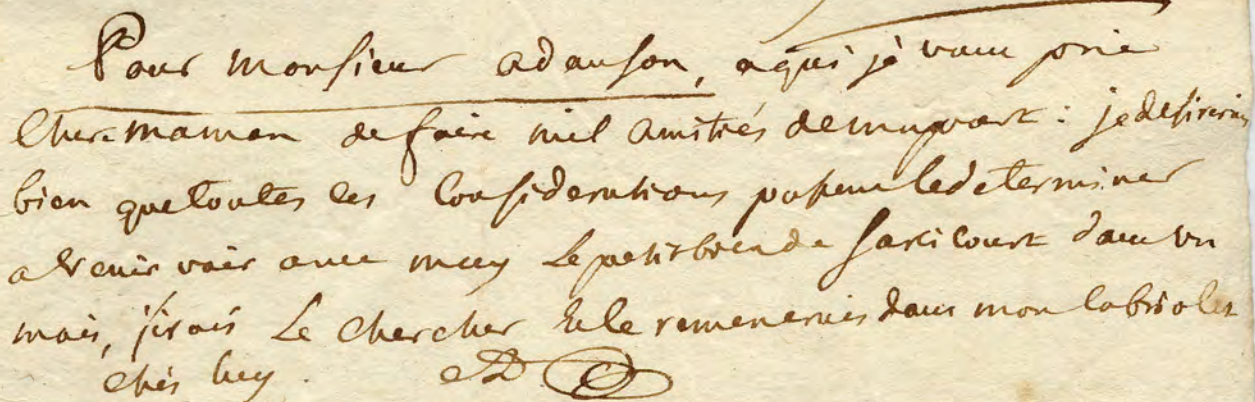 Pour Monsieur adanson, aqui je vous prie
Chere maman de faire mil amitiés de ma part : je desirerois
bien que toutes ces Considerations pussent le determiner
a venir voir avec moy Le petit bien de Saricourt dans un
mois, j'irois Le Chercher Et le remenerois dans mon Cabriolet
chés luy.